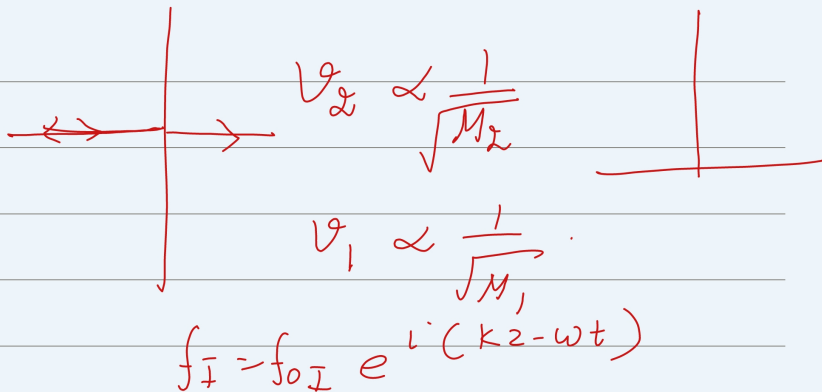 v₂ ∝ 1/√μ₂
v₁ ∝ 1/√μ₁
f_I = f_{0I} e^{i(kz-ωt)}